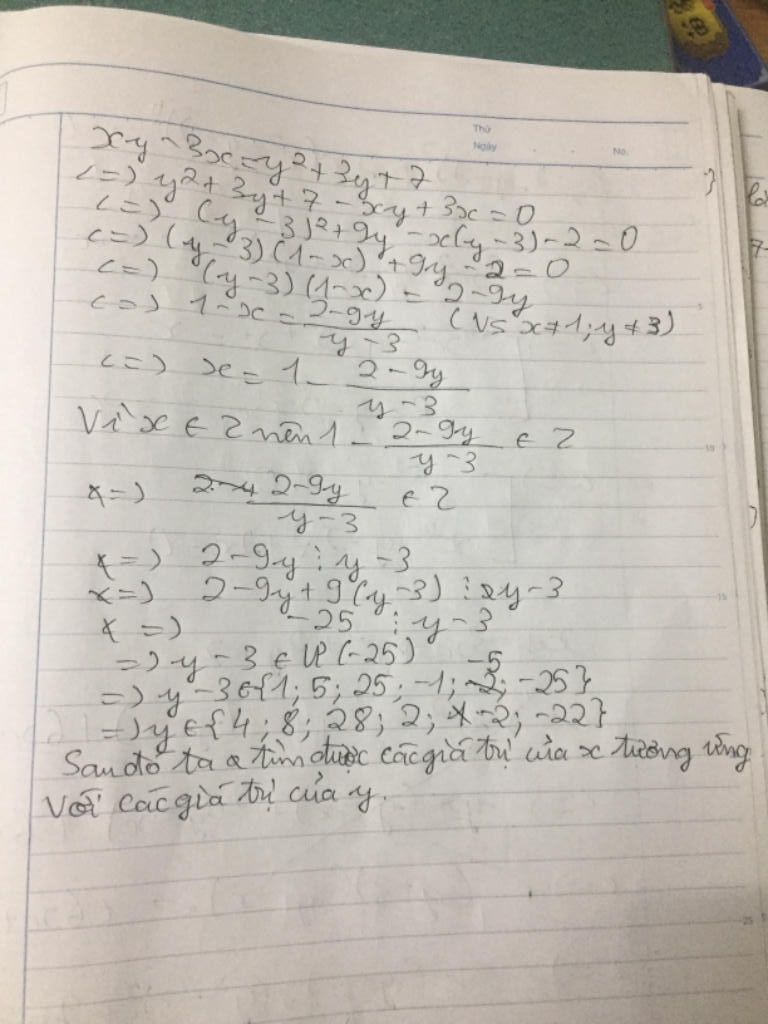 Thứ
Ngày . . No.
xy - 3x = y² + 3y + 7
<=> y² + 3y + 7 - xy + 3x = 0
<=> (y - 3)² + 9y - x(y - 3) - 2 = 0
<=> (y - 3)(1 - x) + 9y - 2 = 0
<=> (y - 3)(1 - x) = 2 - 9y
<=> 1 - x = (2 - 9y)/(y - 3) (Vs x ≠ 1; y ≠ 3)
<=> x = 1 - (2 - 9y)/(y - 3)
Vì x ∈ Z nên 1 - (2 - 9y)/(y - 3) ∈ Z
=> (2 - 9y)/(y - 3) ∈ Z
=> 2 - 9y ⋮ y - 3
=> 2 - 9y + 9(y - 3) ⋮ y - 3
=> -25 ⋮ y - 3
=> y - 3 ∈ Ư(-25)
=> y - 3 ∈ {1; 5; 25; -1; -5; -25}
=> y ∈ {4; 8; 28; 2; -2; -22}
Sau đó ta tìm được các giá trị của x tương ứng
với các giá trị của y.